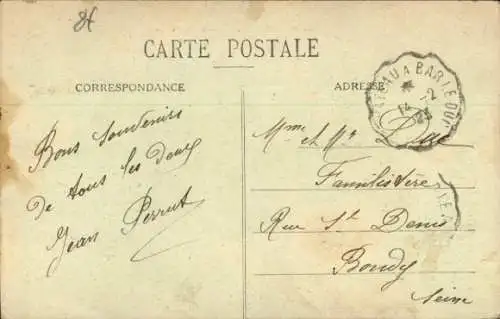 CARTE POSTALE
CORRESPONDANCE
ADRESSE
A BAR LE DUC
14 -2
23
Bons souvenirs
de tous les deux
Jean Perrut
Mme et Mr Duc
Familistère
Rue St Denis
Bondy
Seine